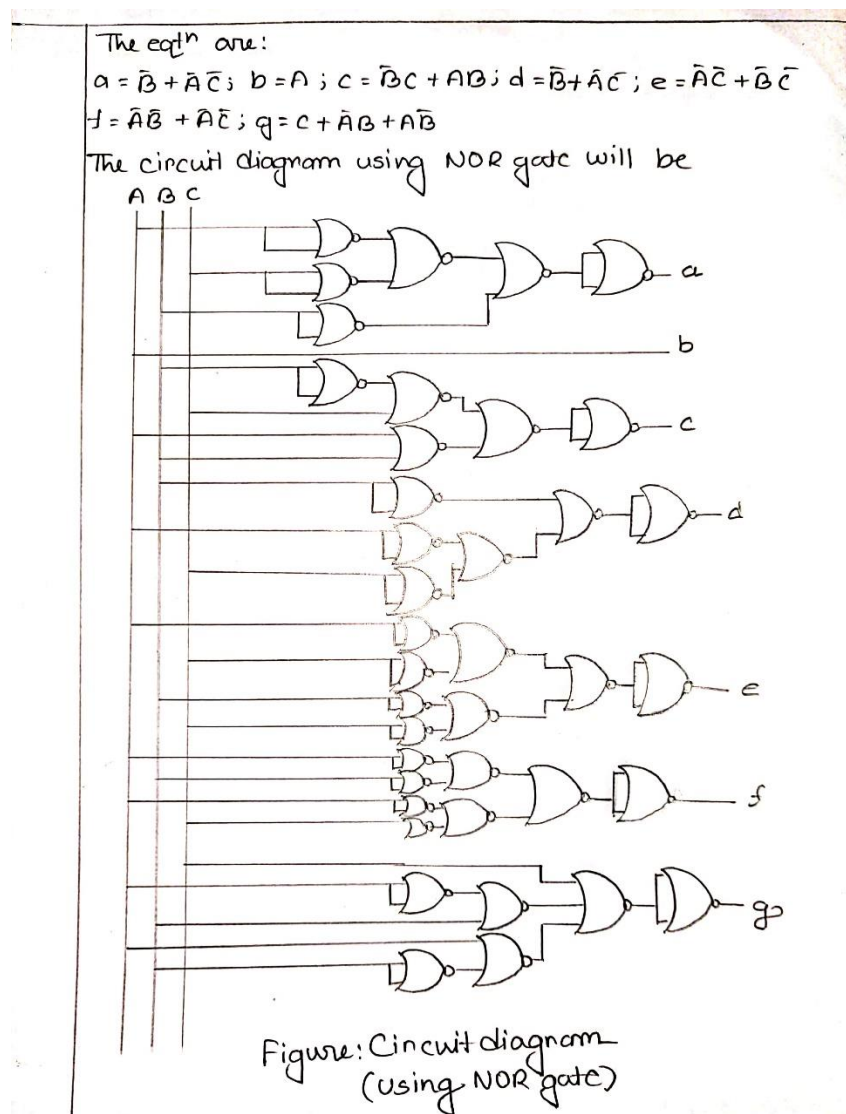 The eqtⁿ are:
a = B̄ + ĀC̄; b = A; c = B̄C + AB; d = B̄ + ĀC̄; e = ĀC̄ + B̄C̄
f = ĀB̄ + ĀC̄; g = C + ĀB + AB̄
The circuit diagram using NOR gate will be
A B C
a
b
c
d
e
f
g
Figure: Circuit diagram
(using NOR gate)